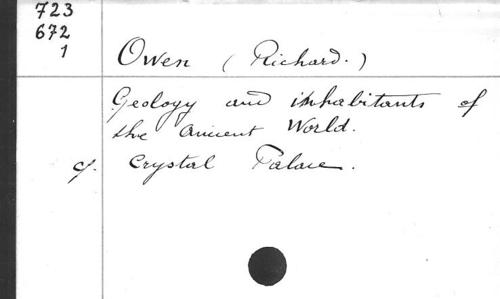 723
672
1
Owen (Richard.)
Geology and inhabitants of
the Ancient World.
cf. Crystal Palace.